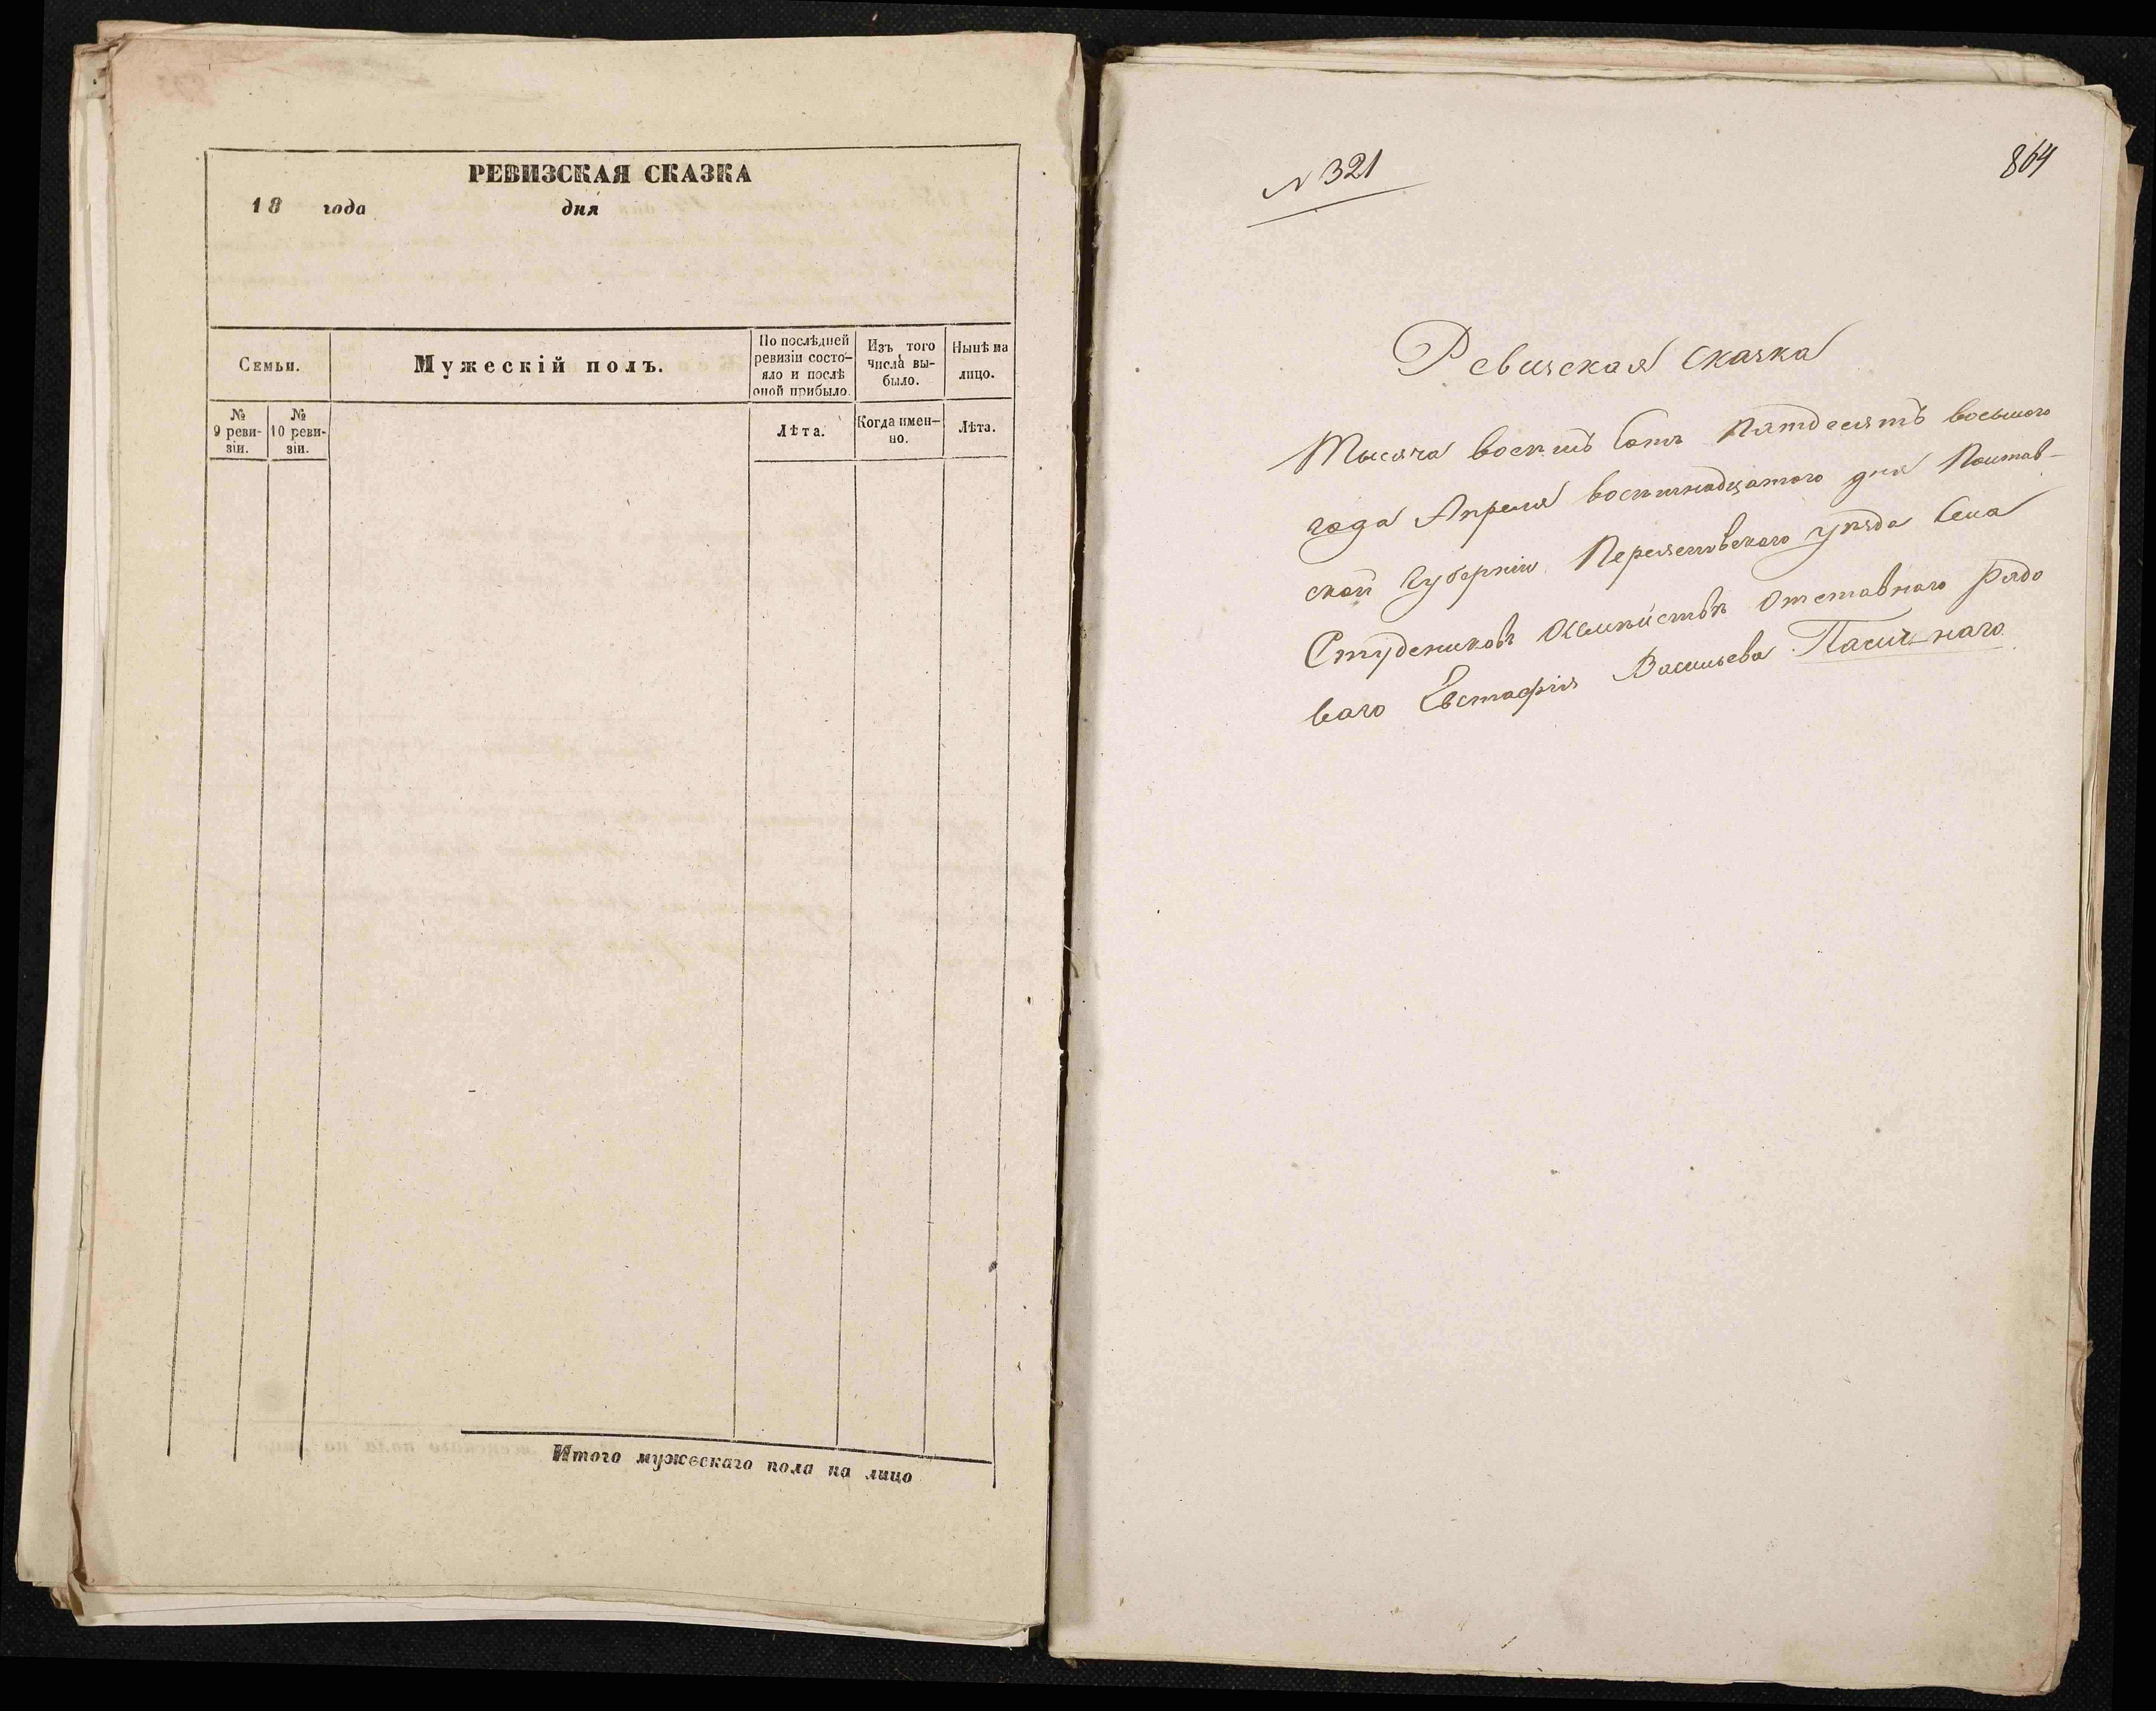 РЕВИЗСКАЯ СКАЗКА
18 года дня
Семьи.
Мужескій полъ.
По послѣдней
ревизіи состо-
яло и послѣ
оной прибыло.
Изъ того
числа вы-
было.
Нынѣ на
лицо.
№
9 реви-
зіи.
№
10 реви-
зіи.
Лѣта.
Когда имен-
но.
Лѣта.
Итого мужескаго пола на лицо
N 321
864
Ревизская сказка
Тысяча восемъ сотъ пятдесятъ восьмого
года Апреля восемнадцатого дня Полтав-
ской Губерніи Переяславского уезда села
Студениковъ отставнаго рядо
ваго Евстафія Васильева Пасичнаго